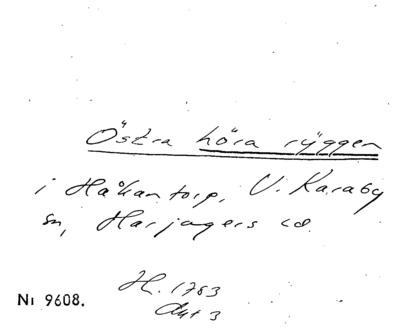 Östra höra ryggen
i Håkantorp, V. Karaby
sn, Harjagers hd.
H. 1783
Akt 3
Nr 9608.